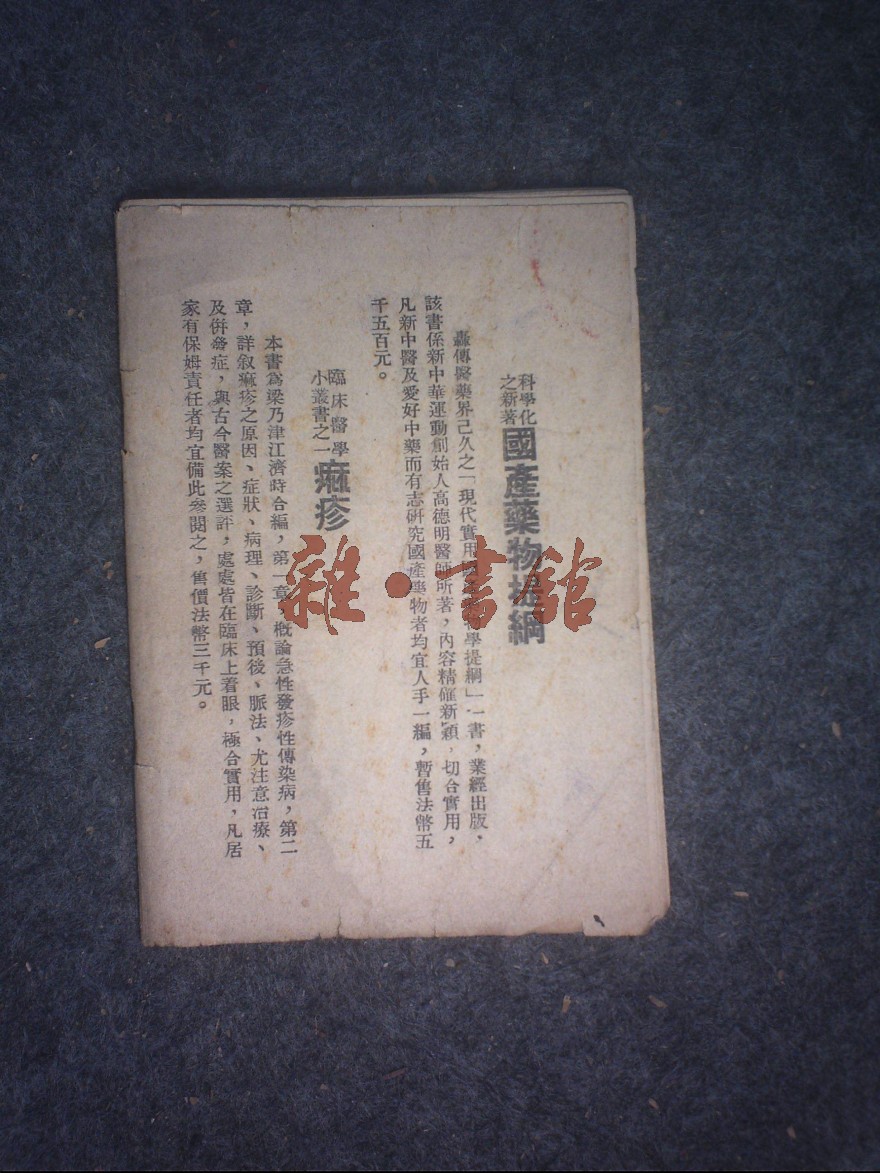 科學化
之新著
國產藥物提綱
轟傳醫藥界已久之「現代實用國產藥物學提綱」一書,業經出版,
該書係新中華運動創始人高德明醫師所著,內容精確新穎,切合實用,
凡新中醫及愛好中藥而有志研究國產藥物者均宜人手一編,暫售法幣五
千五百元。
臨床醫學
小叢書之一
痲疹
本書為梁乃津江濟時合編,第一章,概論急性發疹性傳染病,第二
章,詳叙痲疹之原因、症狀、病理、診斷、預後、脈法、尤注意治療、
及併發症,與古今醫案之選評,處處皆在臨床上着眼,極合實用,凡居
家有保姆責任者均宜備此參閱之,售價法幣三千元。
雜·書館